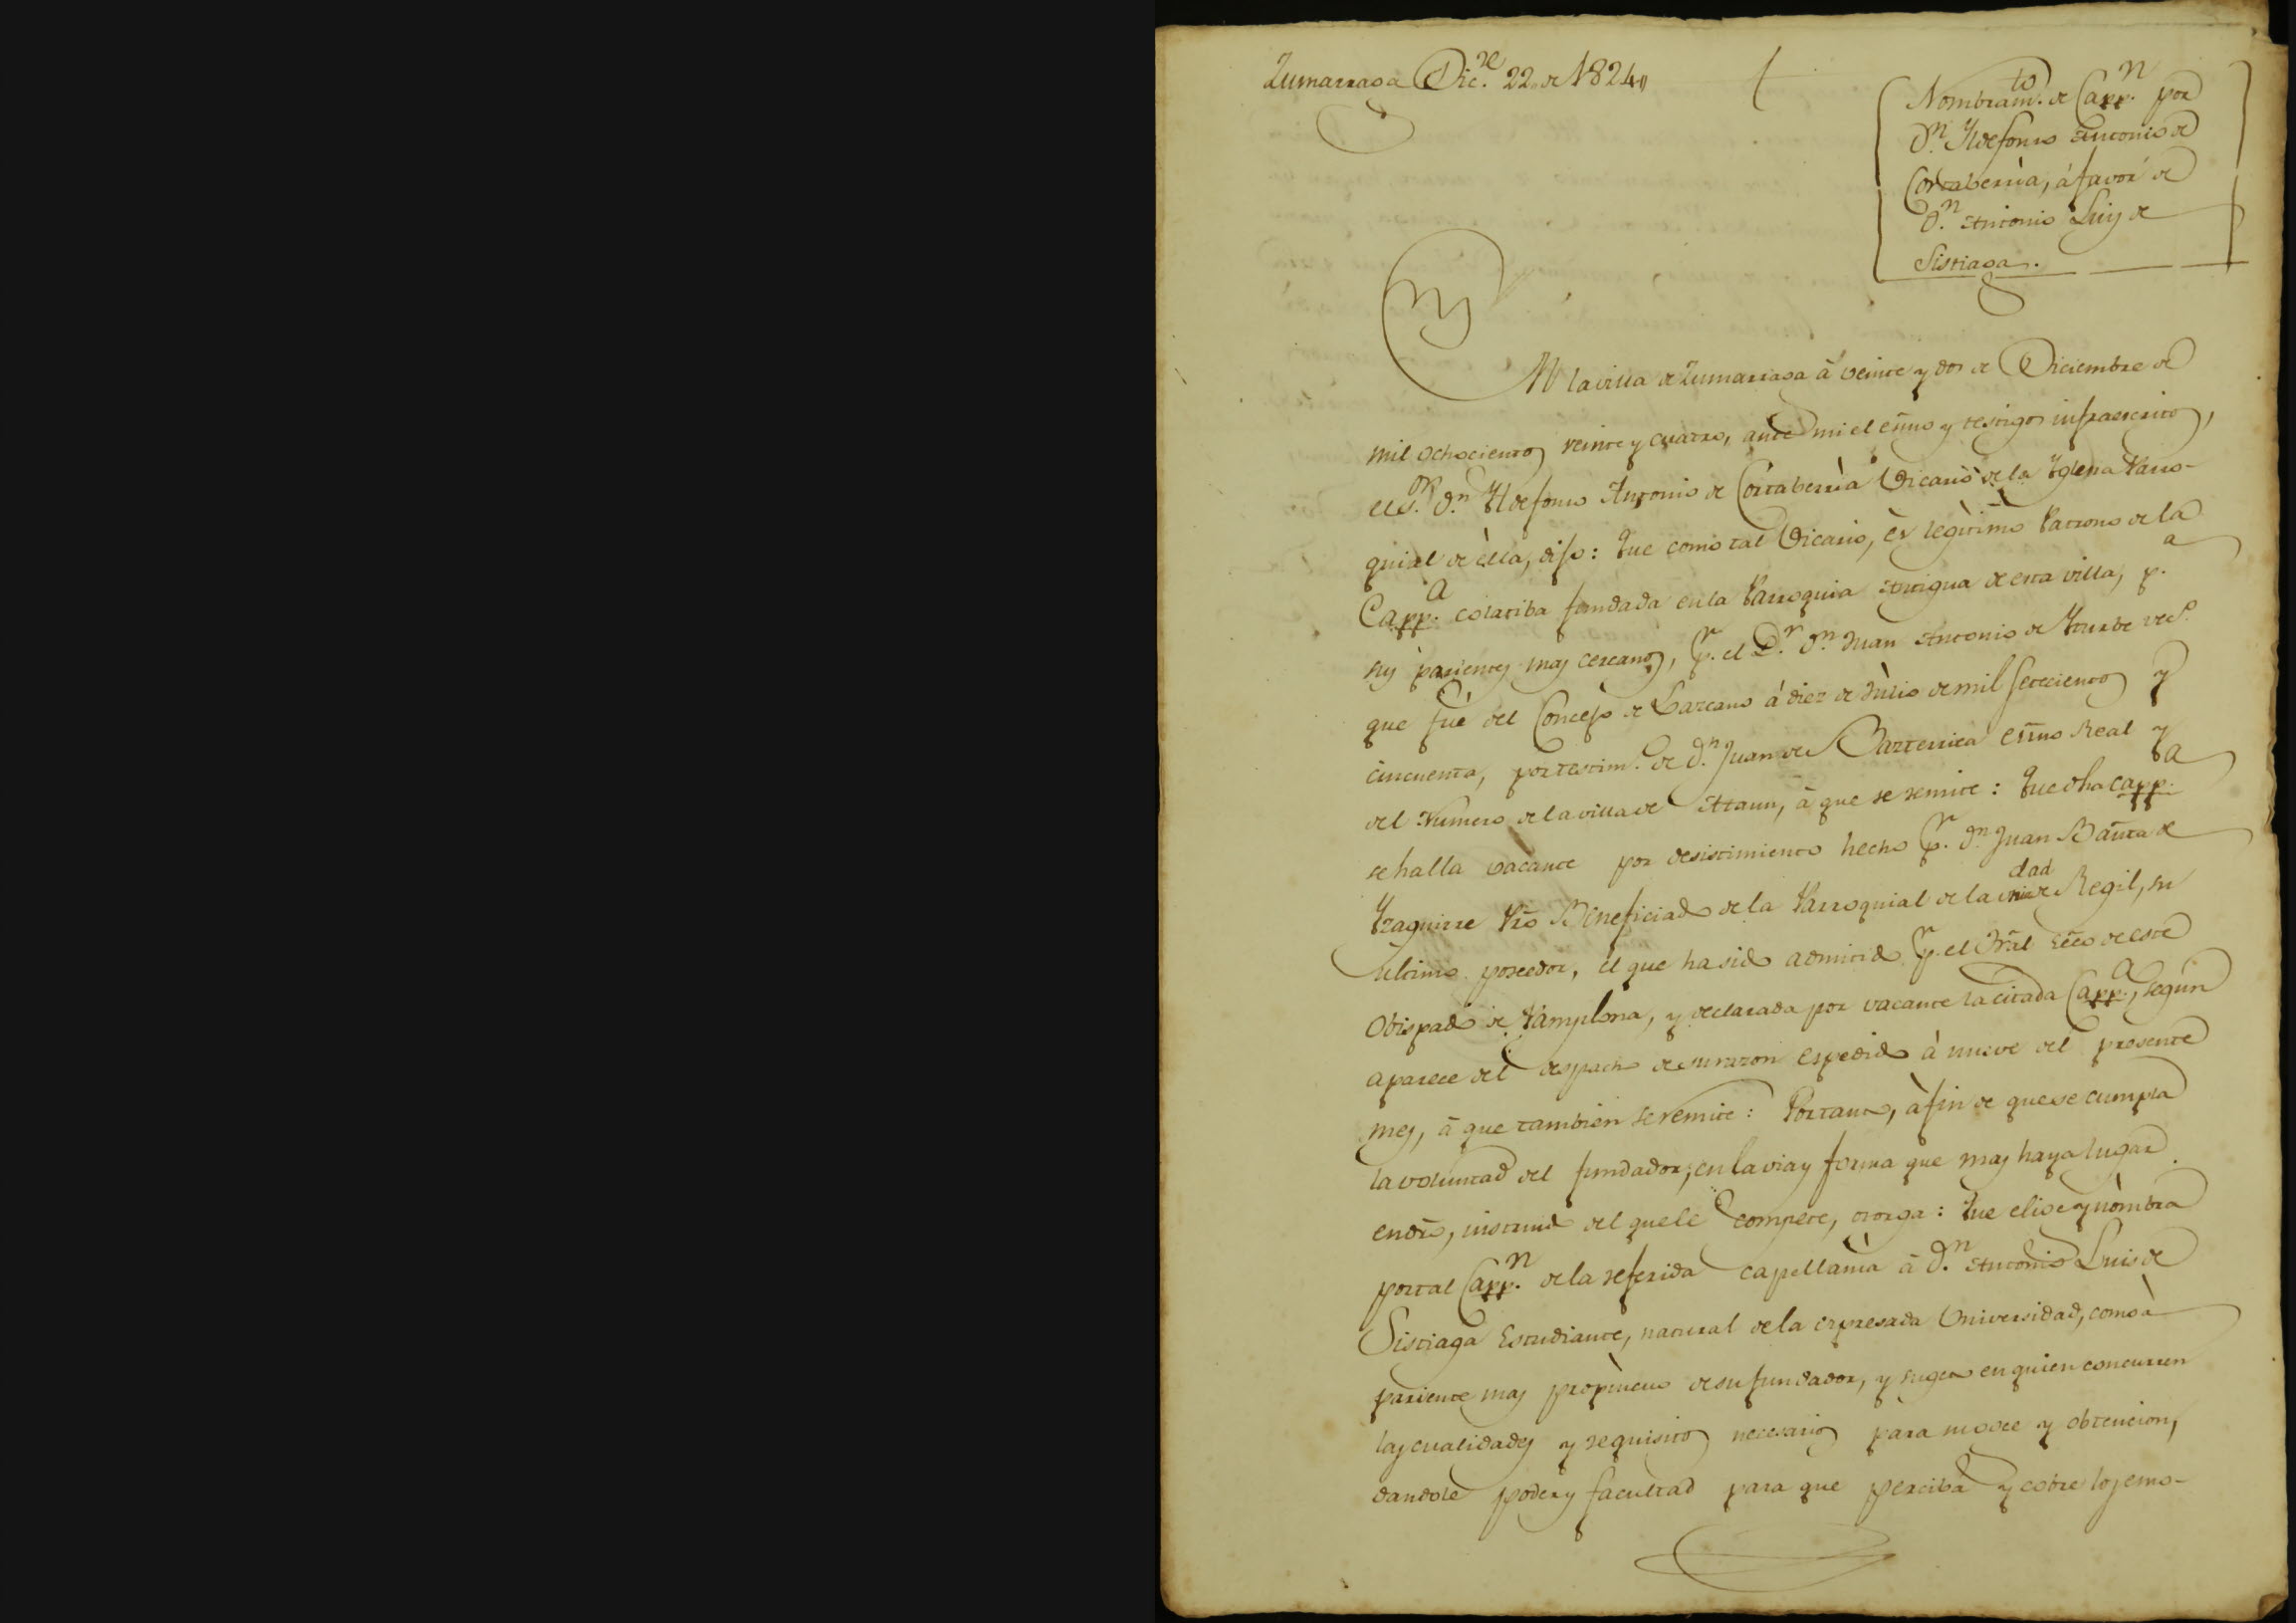 Zumarraga Dic.re 22, de 1824,,
Nombram.to de Capp.n por
D.n Yldefonso Antonio de
Cortaberria, á favor de
D.n Antonio Luis de
Sistiaga.
En la villa de Zumarraga à veinte y dos de Diciembre de
mil ochocientos veinte y cuatro, ante mi el eñno y testigos infraescritos,
el S.or D.n Yldefonso Antonio de Cortaberrìa Vicario de la Yglesia Parro-
quial de èlla, dijo: Que como tal Vicario, ès legìtimo Patrono de la
Capp.a colatiba fundada en la Parroquia Antigua de esta villa, p.a
sus parientes mas cercanos, p.r el D.r D.n Juan Antonio de Yturbe vec.o
que fuè del Concejo de Lazcano á diez de Jùlio de mil setecientos y
cincuenta, por testim.o de D.n Juan de Barzenica eñno Real y
del Numero de la villa de Ataun, à que se remite: Que dha capp.a
se halla vacante por desistimiento hecho p.r D.n Juan Bauta de
Yzaguirre Pro Beneficiado de la Parroquial de la unidad de Regil, su
ultimo poseedor, el que ha sido admitido p.r el Tràl ecco de este
Obispado de Pamplona, y declarada por vacante la citada Capp.a, segun
aparece del despacho de su razon espedido à nueve del presente
mes, à que tambien se remite: Por tanto, à fin de que se cumpla
la voluntad del fundador, en la via y forma que mas haya lugar
en dro, instruido del que le compete, otorga: Que elige y nòmbra
por tal Capp.n de la referida capellanìa à D.n Antonio Luis de
Sistiaga Estudiante, natural de la expresada Universidad, como à
pariente mas propìncuo de su fundador, y sugeto en quien concurren
las cualidades y requisitos necesarios para su goce y obtencion,
dandole poder y facultad para que perciba y cobre los emo-